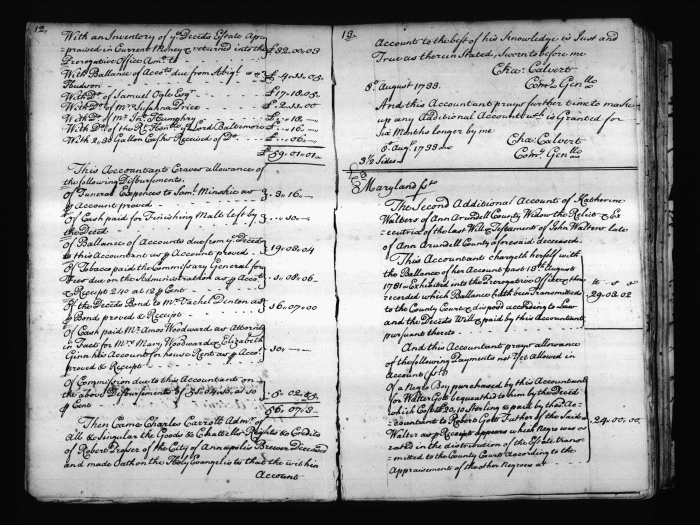 12.
With an Inventory of ye Decds Estate Ap=
=praised in Current Money & returned into the
Prerogative Office Amo. to £32.00.03
With Ballance of Accots due from Abigl
Hudson £4.11.05
With Do. of Samuel Ogle Esqr
With Do. of Mrs Susanna Price £2.11.00
With Do. of Mr Jno. Humphry
With Do. of the Rt. Honble Lord Baltimore
With 2,30 Gallon Casks Received of Do
£59.01.01
This Accountant Craves allowance of
the following Disbursements.
Of Funeral Expences to Saml. Minskie as
Account proved 3.16.
Of Cash paid for Finishing Malt left by
the Decd
Of Ballance of Accounts due from ye Decd
to this Accountant as Account proved 19.08.04
Of Tobacco paid the Commissary General for
Fees due on the Administration as Accot
& Receipt 240 at 12 Cent
Of the Decds Bond to Mr Vachel Denton as
Bond proved & Receipt 16.07.00
Of Cash paid Mr Amos Woodward as Attorny
in Fact for Mrs Mary Woodward & Elizabeth
Ginn his Account for house Rent as Accot
proved & Receipt
Of Commission due this Accountant on
the above Disbursements of
Cent
Then Came Charles Carroll Admr of
All & Singular the Goods & Chattells Rights & Credits
of Robert Prosser of the City of Annapolis Brewer Deceased
and made Oath on the Holy Evangelists that the within
Account
13.
Account to the best of his Knowledge is Just and
True as therein Stated, Sworn before me
Chas: Calvert
Comry Genll
8th August 1733.
And this Accountant prays further time to make
up any Additional Account wch is Granted for
Six Months longer by me
Chas: Calvert
Comry Genll
8. Augt 1733
3½ Sides
Maryland ss
The Second Additional Account of Katherine
Walters of Ann Arundell County Widow the Relict & Ex=
=ecutrix of the last Will & Testament of John Walters late
of Ann Arundell County aforesaid deceased.
This Accountant chargeth herself with
the Ballance of her Account past 18th August
1731 & Exhibited into the Prerogative Office & then
recorded which Ballance hath been Transmitted
to the County Court & disposed according to Law
and the Decds Will & paid by this Accountant
pursuant thereto 29.03.02
And this Accountant prays allowance
of the following Payments not Yet Allowed in
Account (to wit)
Of a Negro Boy purchased by this Accountant
for Walter Gott bequeathed to him by the Decd
which Cost £20.10 Sterling & paid by this Ac=
=countant to Robert Gott Father of the said
Walter as Receipt appears which Negro was
rated in the distribution of the Estate trans=
=mitted to the County Court According to the
Appraisement of the other Negroes at 24.00.00